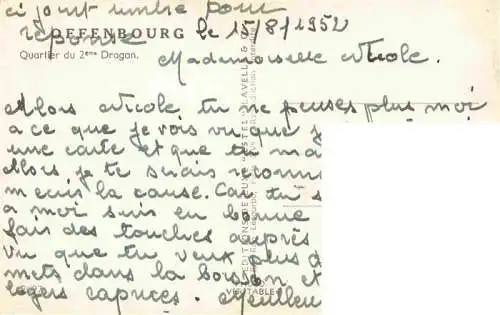 ci joint timbre pour
réponse
OFFENBOURG le 15/8/1952
Quartier du 2eme Dragon.
Mademoiselle Nicole.
Alors Nicole tu ne penses plus moi
a ce que je vois vu que j
une carte et que tu m'a
Alors je te serais reconn
la cause. Car tu s
a moi suis en bonne
fais des touches auprès
vu que tu veux plus d
mets dans la boisson et
légers caprices. Meilleu
VERITABLE